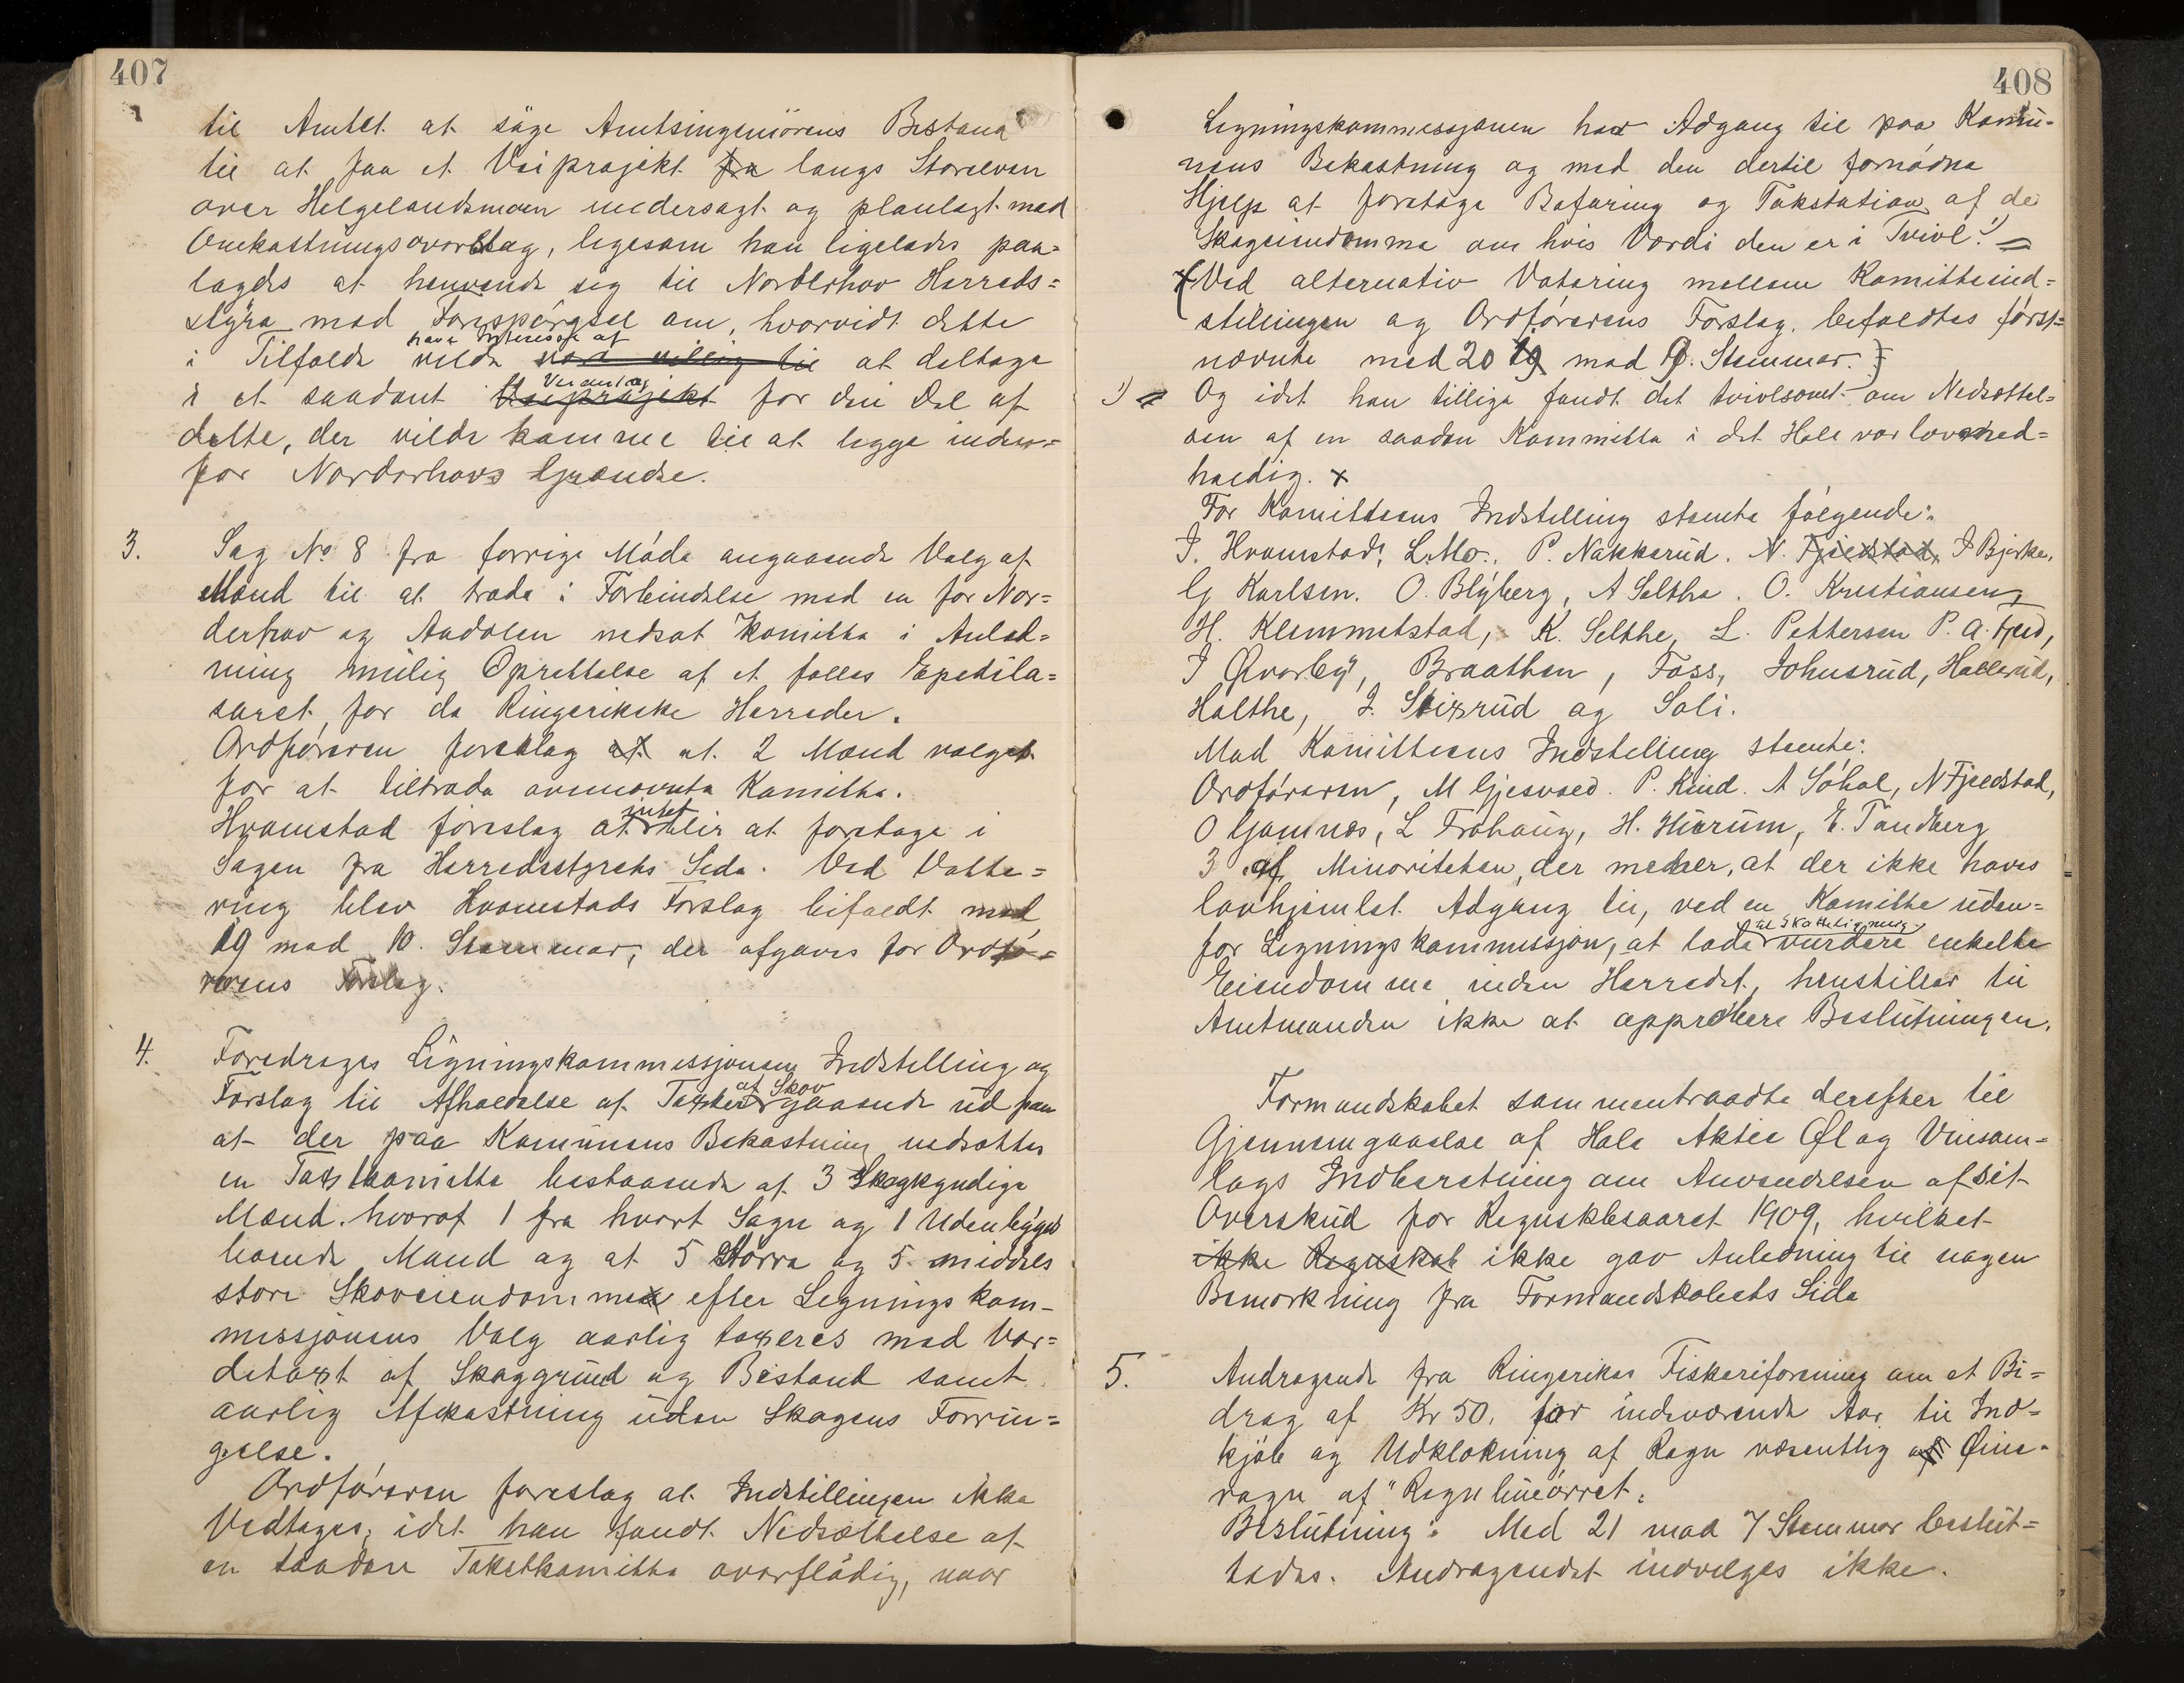 407
til Amtet at søge Amtsingeniørens Bistand
til at faa et Veiprojekt fra langs Storelven
over Helgelandsmoen undersøgt og planlagt med
Omkostningsoverslag, ligesom han ligeledes paa-
lagdes at henvende sig til Norderhov Herreds=
styre med Forespørgsel om, hvorvidt dette
have Interesse af
i Tilfælde vilde være villig til at deltage
Veianlæg
i et saadant Veiprojekt for den Del af
dette, der vilde komme til at ligge inden=
for Norderhovs Grændse.
3. Sag No 8 fra forrige Møde angaaende Valg af
Mænd til at træde i Forbindelse med en for Nor=
derhov og Aadalen nedsat Komitte i Anled=
ning mulig Oprettelse af et fælles Epedila=
saret, for de Ringerikske Herreder.
Ordføreren foreslog at at 2 Mænd valgtes
for at tiltræde ovennævnte Komitte.
intet
Hvamstad foreslog at blir at foretage i
Sagen fra Herredsstyrets Side. Ved Votte=
ring blev Hvamstads Forslag bifaldt med
19 mod 10. Stemmer, der afgaves for Ordfø=
rerens Forslag.
4. Foredroges Ligningskommissjonens Indstilling og
af Skov
Forslag til Afholdelse af Taxter gaaende ud paa
at der paa Kommunens Bekostning nedsættes
en Taxtkomitte bestaaende af 3 Skogkyndige
Mænd. hvoraf 1 fra hvert Sogn og 1 Udenbygds
boende Mand og at 5 større og 5 middels
store Skoveiendomme efter Lignings kom-
missjonens Valg aarlig taxeres med Vær=
ditaxt af Skoggrund og Bestand samt
aarlig Afkastning uden Skogens Forrin=
gelse.
Ordføreren foreslog at Indstillingen ikke
Vedtages, idet han fandt Nedsættelse af
en saadan Takstkomitte overflødig, naar
408
Ligningskommissjonen har Adgang til paa Kommu-
nens Bekostning og med den dertil fornødne
Hjælp at foretage Befaring og Takstation af de
Skogeiendomme om hvis Værdi den er i Tvivl. 1)
x(Ved alternativ Votering mellem Komitteind=
stillingen og Ordførerens Forslag. befaldtes først=
nævnte med 20 mod 9. Stemmer.)
1) Og idet han tillige fandt det tvivlsomt om Nedsættel=
sen af en saadan Kommitte i det Hele var lovmed=
holdig. x
For Komitteens Indstilling stemte følgende:
I. Hvamstad, L. Mo., P. Nakkerud. N. Fjeldstad, I Bjerke,
G Karlsen. O. Blyberg, A Selthe. O. Kristiansen,
H. Klemmetstad, K. Selthe, L. Pettersen P. A. Fjeld,
I Øverby, Braathen, Foss, Johnsrud, Hallerud,
Holthe, I. Skirsrud og Soli.
Mod Komitteens Indstilling stemte:
Ordføreren, M Gjesvold. P. Rud. A Søhol, N Fjeldstad,
O Gamnæs, L Frøhaug, H. Hurum, E. Tandberg
3 af Minoriteten, der mener, at der ikke haves
lovhjemlet Adgang til, ved en Komitte uden=
til Skatteligning
for Ligningskommissjon, at lade vurdere enkelte
Eiendomme inden Herredet, henstiller til
Amtmanden ikke at approbere Beslutningen.
Formandskabet sammentraadte derefter til
Gjennemgaaelse af Hole Aktie Øl og Vinsam-
lags Indberetning om Anvendelsen af sit
Overskud for Regnskbsaaret 1909, hvilket
ikke Regnskab ikke gav Anledning til nogen
Bemærkning fra Formandskabets Side
5. Andragende fra Ringerikes Fiskeriforening om et Bi=
drag af Kr 50. for indeværende Aar til Ind=
kjøb og Udklækning af Rogn væsentlig af Ørre-
rogn af "Regnbueørret.
Beslutning: Med 21 mod 7 Stemmer beslut=
tedes. Andragendet indvilges ikke.